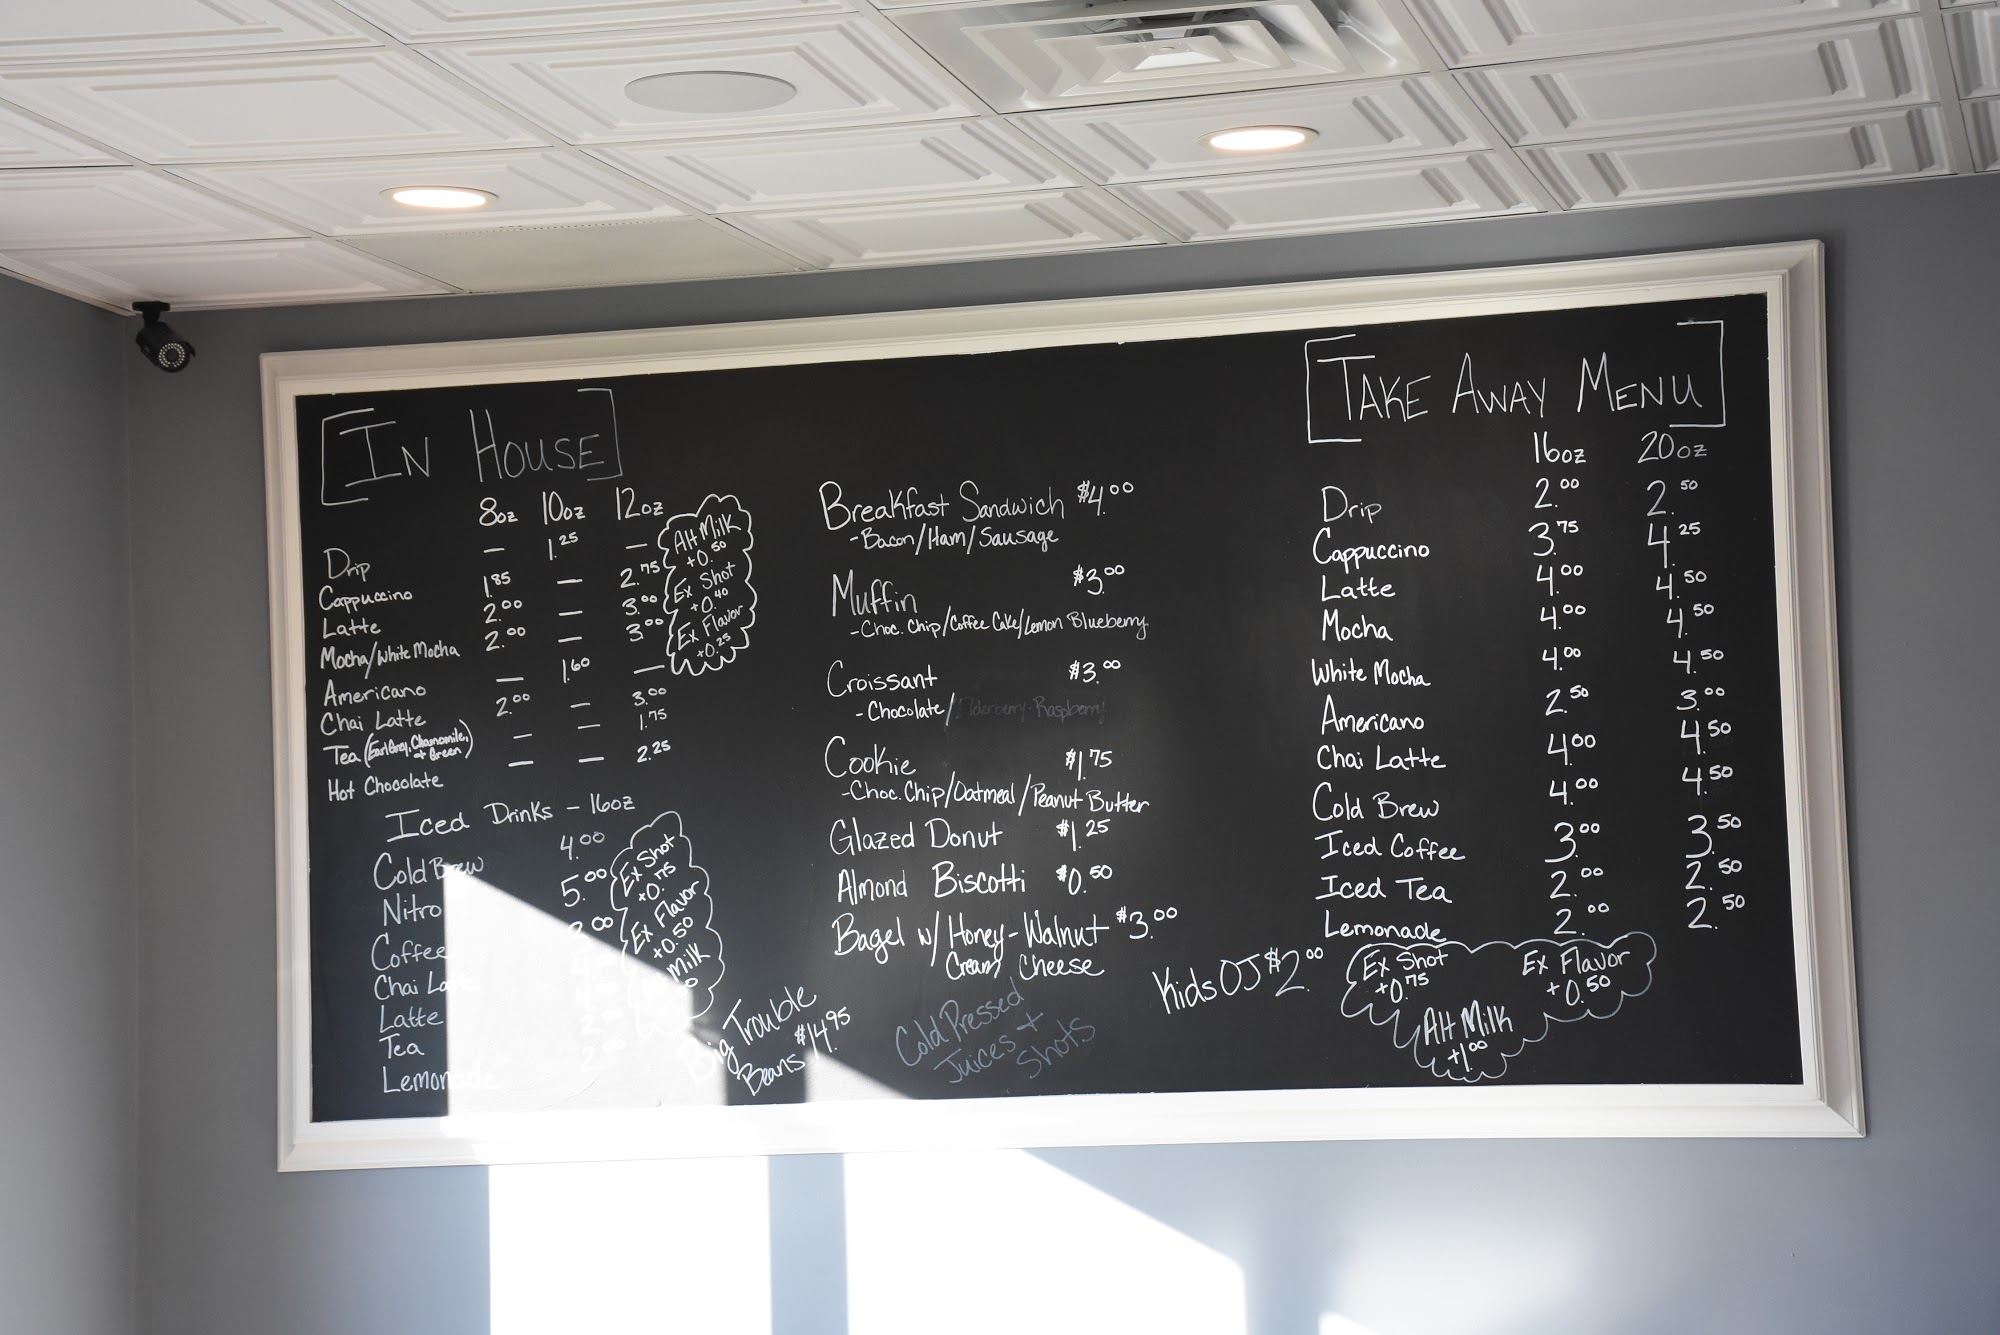 In House
8oz 10oz 12oz
Drip — 1.25 —
Cappuccino 1.85 — 2.75
Latte 2.00 — 3.00
Mocha/White Mocha 2.00 — 3.00
Americano — 1.60 —
Chai Latte 2.00 — 3.00
Tea (Earl Grey, Chamomile, + Green) — — 1.75
Hot Chocolate — — 2.25
Alt Milk
+0.50
Ex Shot
+0.40
Ex Flavor
+0.25
Iced Drinks - 16oz
Cold Brew 4.00
Nitro 5.00
Coffee 3.00
Chai Latte
Latte
Tea
Lemonade 2.00
Ex Shot
+0.75
Ex Flavor
+0.50
Milk
Big Trouble
Beans $14.95
Breakfast Sandwich $4.00
-Bacon/Ham/Sausage
Muffin $3.00
-Choc. Chip/Coffee Cake/Lemon Blueberry
Croissant $3.00
-Chocolate/Elderberry-Raspberry
Cookie $1.75
-Choc. Chip/Oatmeal/Peanut Butter
Glazed Donut $1.25
Almond Biscotti $0.50
Bagel w/ Honey-Walnut $3.00
Cream Cheese
Cold Pressed
Juices +
Shots
Kids OJ $2.00
Take Away Menu
16oz 20oz
Drip 2.00 2.50
Cappuccino 3.75 4.25
Latte 4.00 4.50
Mocha 4.00 4.50
White Mocha 4.00 4.50
Americano 2.50 3.00
Chai Latte 4.00 4.50
Cold Brew 4.00 4.50
Iced Coffee 3.00 3.50
Iced Tea 2.00 2.50
Lemonade 2.00 2.50
Ex Shot
+0.75
Ex Flavor
+0.50
Alt Milk
+1.00